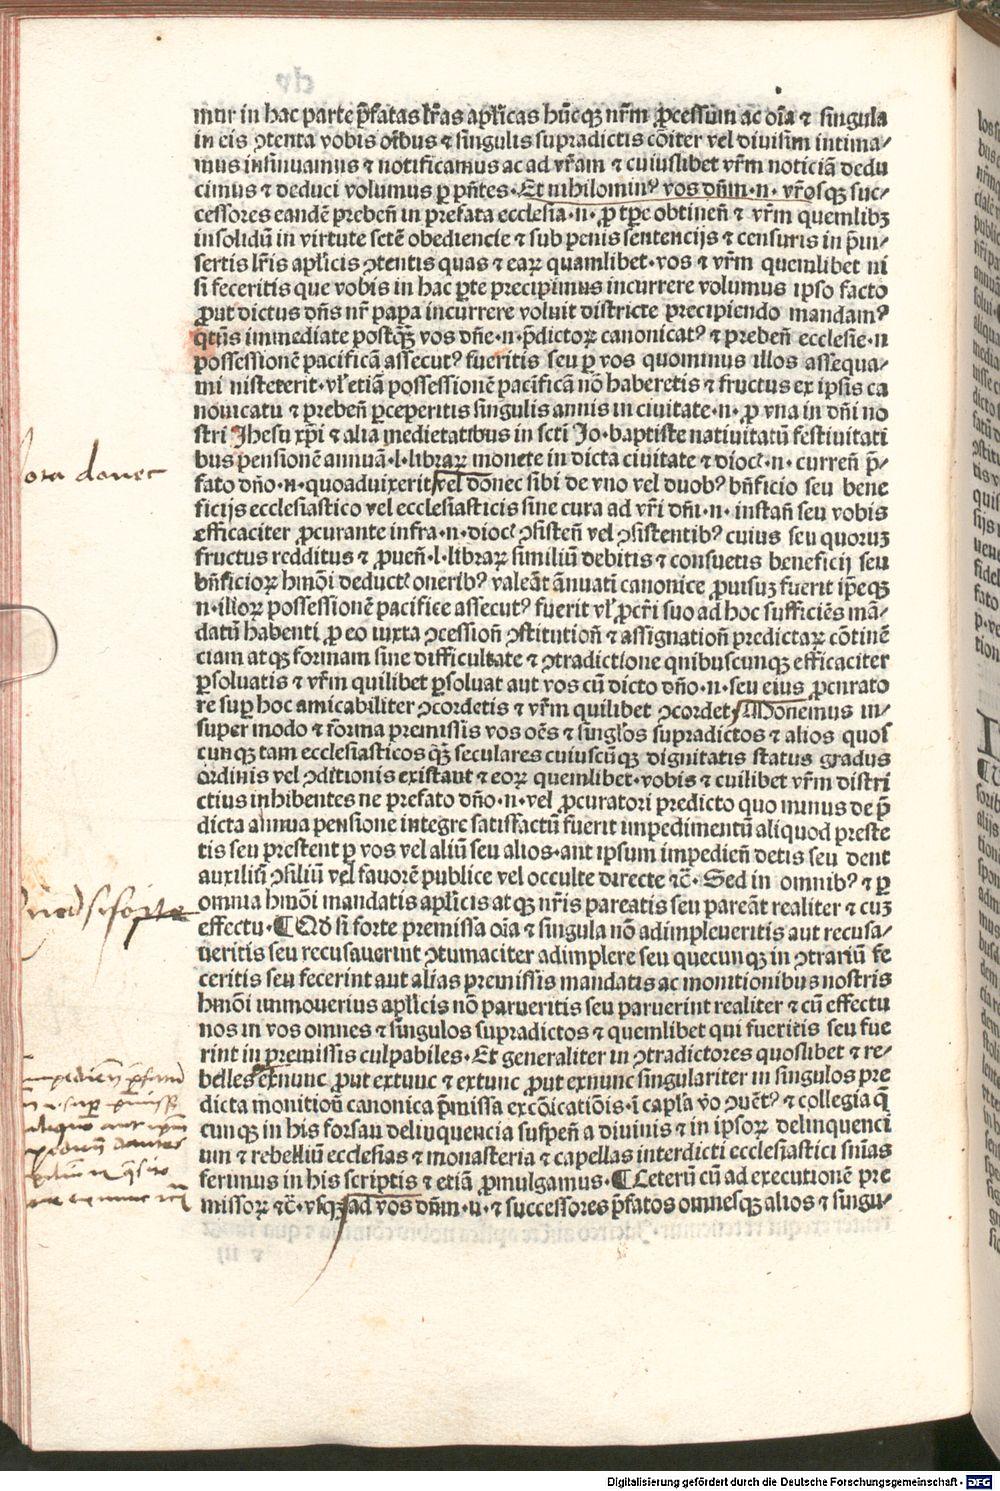 mur in hac parte p̄fatas lr̄as apl̓icas hūcqꝫ nr̄m ꝓcessum ac oīa ⁊ singula
in eis ꝯtenta vobis oībus ⁊ singulis supradictis cōiter vel diuisim intima⸗
mus insinuamus ⁊ notificamus ac ad vr̄am ⁊ cuiuslibet vr̄m noticiā dedu
cimus ⁊ deduci volumus ꝑ pn̄tes·Et nihilominꝰ vos dn̄m·n·vr̄osqꝫ suc⸗
cessores eandē prebeñ in prefata ecclesia·n·ꝓ tꝑe obtineñ ⁊ vr̄m quemlibꝫ
insolidū in virtute sctē obediencie ⁊ sub penis sentencijs ⁊ censuris in p̄in⸗
sertis lr̄is apl̓icis ꝯtentis quas ⁊ eaꝝ quamlibet·vos ⁊ vr̄m quemlibet ni
si feceritis que vobis in hac ꝑte precipimus incurrere volumus ipso facto
ꝓut dictus dn̄s nr̄ papa incurrere voluit districte precipiendo mandamꝰ
qt̄n̄s immediate postqꝫ̄ vos dn̄e·n·p̄dictoꝝ canonicatꝰ ⁊ prebeñ ecclesie·n
possessionē pacificā assecutꝰ fueritis seu ꝑ vos quominus illos assequa⸗
mi nisteterit·vl̓ etiā possessionē pacificā nō haberetis ⁊ fructus ex ipsis ca
nonicatu ⁊ prebeñ ꝑceperitis singulis annis in ciuitate·n·ꝓ vna in dn̄i no
stri Jhesu xp̄i ⁊ alia medietatibus in sctī Jo·baptiste natiuitatū festiuitati
bus pensionē annuā·l·libraꝝ monete in dicta ciuitate ⁊ dioc̓·n·curreñ p̄⸗
fato dn̄o·n·quoaduixerit vel donec sibi de vno vel duobꝰ bn̄ficio seu bene
ficijs ecclesiastico vel ecclesiasticis sine cura ad vr̄i dn̄i·n·instañ seu vobis
efficaciter ꝓcurante infra·n·dioc̓ ꝯsisteñ vel ꝯsistentibꝰ cuius seu quoruꝫ
fructus redditus ⁊ ꝓueñ·l·libraꝝ similiū debitis ⁊ consuetis beneficij seu
bn̄ficioꝝ hmōi deduct̓ oneribꝰ valeāt ānuati canonice ꝓuisuꝫ fuerit ip̄eqꝫ
n·illoꝝ possessionē pacifice assecutꝰ fuerit vl̓ ꝓcr̄i suo ad hoc sufficiēs mā⸗
datū habenti ꝓ eo iuxta ꝯcessioñ ꝯstitutioñ ⁊ assignatioñ predictaꝝ cōtinē
ciam atqꝫ formam sine difficultate ⁊ ꝯtradictione quibuscunqꝫ efficaciter
ꝑsoluatis ⁊ vr̄m quilibet ꝑsoluat aut vos cū dicto dn̄o·n·seu eius ꝓcurato
re suꝑ hoc amicabiliter ꝯcordetis ⁊ vr̄m quilibet ꝯcordet Monemus in⸗
super modo ⁊ forma premissis vos oēs ⁊ singl̓os supradictos ⁊ alios quos
cunqꝫ tam ecclesiasticos qꝫ̄ seculares cuiuscūqꝫ dignitatis status gradus
ordinis vel ꝯditionis existant ⁊ eoꝝ quemlibet·vobis ⁊ cuilibet vr̄m distri
ctius inhibentes ne prefato dn̄o·n·vel ꝓcuratori predicto quo minus de p̄
dicta annua pensione integre satisfactū fuerit impedimentū aliquod preste
tis seu prestent ꝑ vos vel aliū seu alios·aut ipsum impedieñ detis seu dent
auxiliū ꝯsiliū vel fauorē publice vel occulte directe ⁊c̄·Sed in omnibꝰ ⁊ ꝑ
omnia hmōi mandatis apl̓icis atqꝫ nr̄is pareatis seu pareāt realiter ⁊ cuꝫ
effectu·¶ Qd̓ si forte premissa oīa ⁊ singula nō adimpleueritis aut recusa⸗
ueritis seu recusauerint ꝯtumaciter adimplere seu quecunqꝫ in ꝯtrariū fe
ceritis seu fecerint aut alias premissis mandatis ac monitionibus nostris
hmōi immouerius apl̓icis nō parueritis seu paruerint realiter ⁊ cū effectu
nos in vos omnes ⁊ singulos supradictos ⁊ quemlibet qui fueritis seu fue
rint in premissis culpabiles·Et generaliter in ꝯtradictores quoslibet ⁊ re⸗
belles exnunc ꝓut extunc ⁊ extunc ꝓut exnunc singulariter in singulos pre
dicta monitioñ canonica p̄missa excōicatiōis·ī capl̓a v̓o ꝯuētꝰ ⁊ collegia q̄
cunqꝫ in his forsan delinquencia suspeñ a diuinis ⁊ in ipsoꝝ delinquenci
um ⁊ rebelliū ecclesias ⁊ monasteria ⁊ capellas interdicti ecclesiastici sn̄ias
ferimus in his scriptis ⁊ etiā ꝓmulgamus·¶ Ceterū cū ad executionē pre
missoꝝ ⁊c̄·vsqꝫ ad vos dn̄m·n·⁊ successores p̄fatos omnesqꝫ alios ⁊ singu⸗
donec
si forte
Digitalisierung gefördert durch die Deutsche Forschungsgemeinschaft - DFG